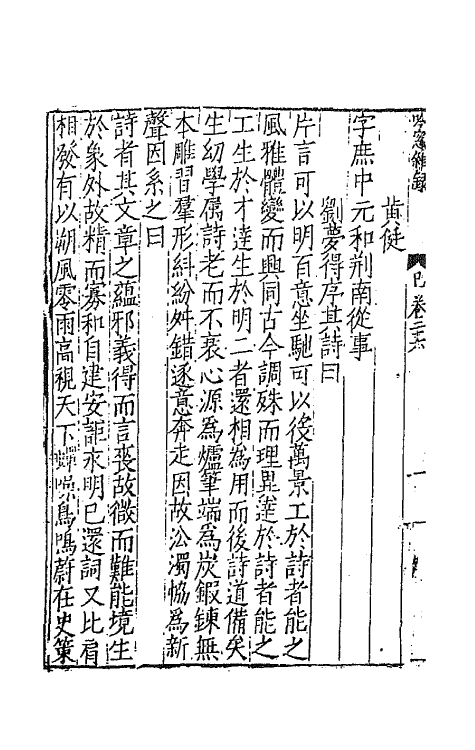 吟窻雜録 巳卷三十六
黄 侹
字庶中元和荆南從事
劉夢得序其詩曰
片言可以明百意坐馳可以役萬景工於詩者能之
風雅體變而興同古今調殊而理異達於詩者能之
工生於才達生於明二者還相為用而後詩道備矣
生幼學属詩老而不衰心源爲爐筆端爲炭鍜鍊無
本雕習羣形糾紛舛錯逐意奔走因故沿濁恊爲新
聲因系之曰
詩者其文章之蘊邪義得而言喪故微而難能境生
於象外故精而寡和自建安距永明已還詞又比肩
相發有以朔風零雨高視天下蟬噪鳥鳴蔚在史策